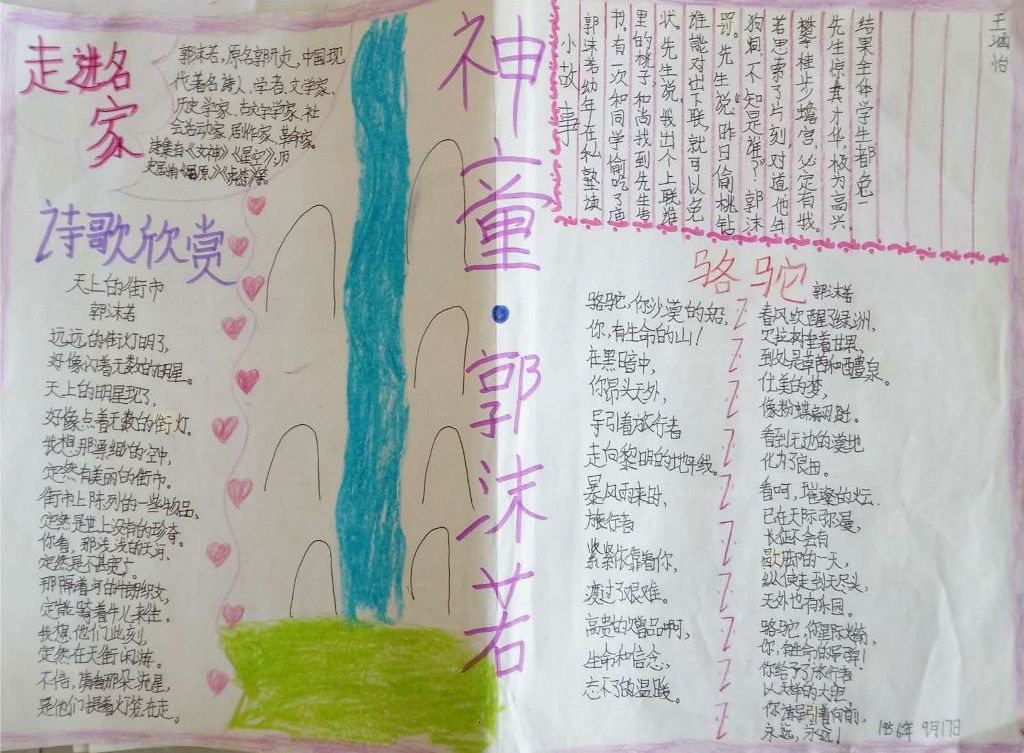 走进名家
郭沫若,原名郭开贞,中国现
代著名诗人、学者、文学家、
历史学家、古文字学家、社
会活动家、剧作家、革命家。
诗集有《女神》《星空》,历
史剧有《屈原》《虎符》等。
诗歌欣赏
天上的街市
郭沫若
远远的街灯明了,
好像闪着无数的明星。
天上的明星现了,
好像点着无数的街灯。
我想那缥缈的空中,
定然有美丽的街市。
街市上陈列的一些物品,
定然是世上没有的珍奇。
你看,那浅浅的天河,
定然是不甚宽广。
那隔着河的牛郎织女,
定能骑着牛儿来往。
我想他们此刻,
定然在天街闲游。
不信,请看那朵流星,
是他们提着灯笼在走。
神童·郭沫若
小故事
郭沫若幼年在私塾读
书,有一次和同学偷吃了庙
里的桃子,和尚找到先生告
状。先生说,我出个上联,谁
谁能对出下联,就可以免
罚。先生说:“昨日偷桃钻
狗洞,不知是谁?”郭沫
若思索了片刻,对道:他年
攀桂步蟾宫,必定有我。
先生惊其才华,极为高兴,
结果全体学生都免
骆驼
郭沫若
骆驼,你沙漠的船,
你,有生命的山!
在黑暗中,
你昂头天外,
导引着旅行者
走向黎明的地平线。
暴风雨来时,
旅行者
紧紧依靠着你,
渡过了艰难。
高贵的赠品啊,
生命和信念,
忘不了的温暖。
春风吹醒了绿洲,
到处是草茵和醴泉。
优美的梦,
像粉蝶翩跹。
看到无边的漠地
化为了良田。
看呵,璀璨的火云
已在天际弥漫,
长征不会有
歇脚的一天,
纵使走到天尽头,
天外也有乐园。
骆驼,你星际火箭,
你,有生命的导弹!
你给予了旅行者
以天样的大胆
你请导引着向前,
永远,永远!
1956年 9月17日